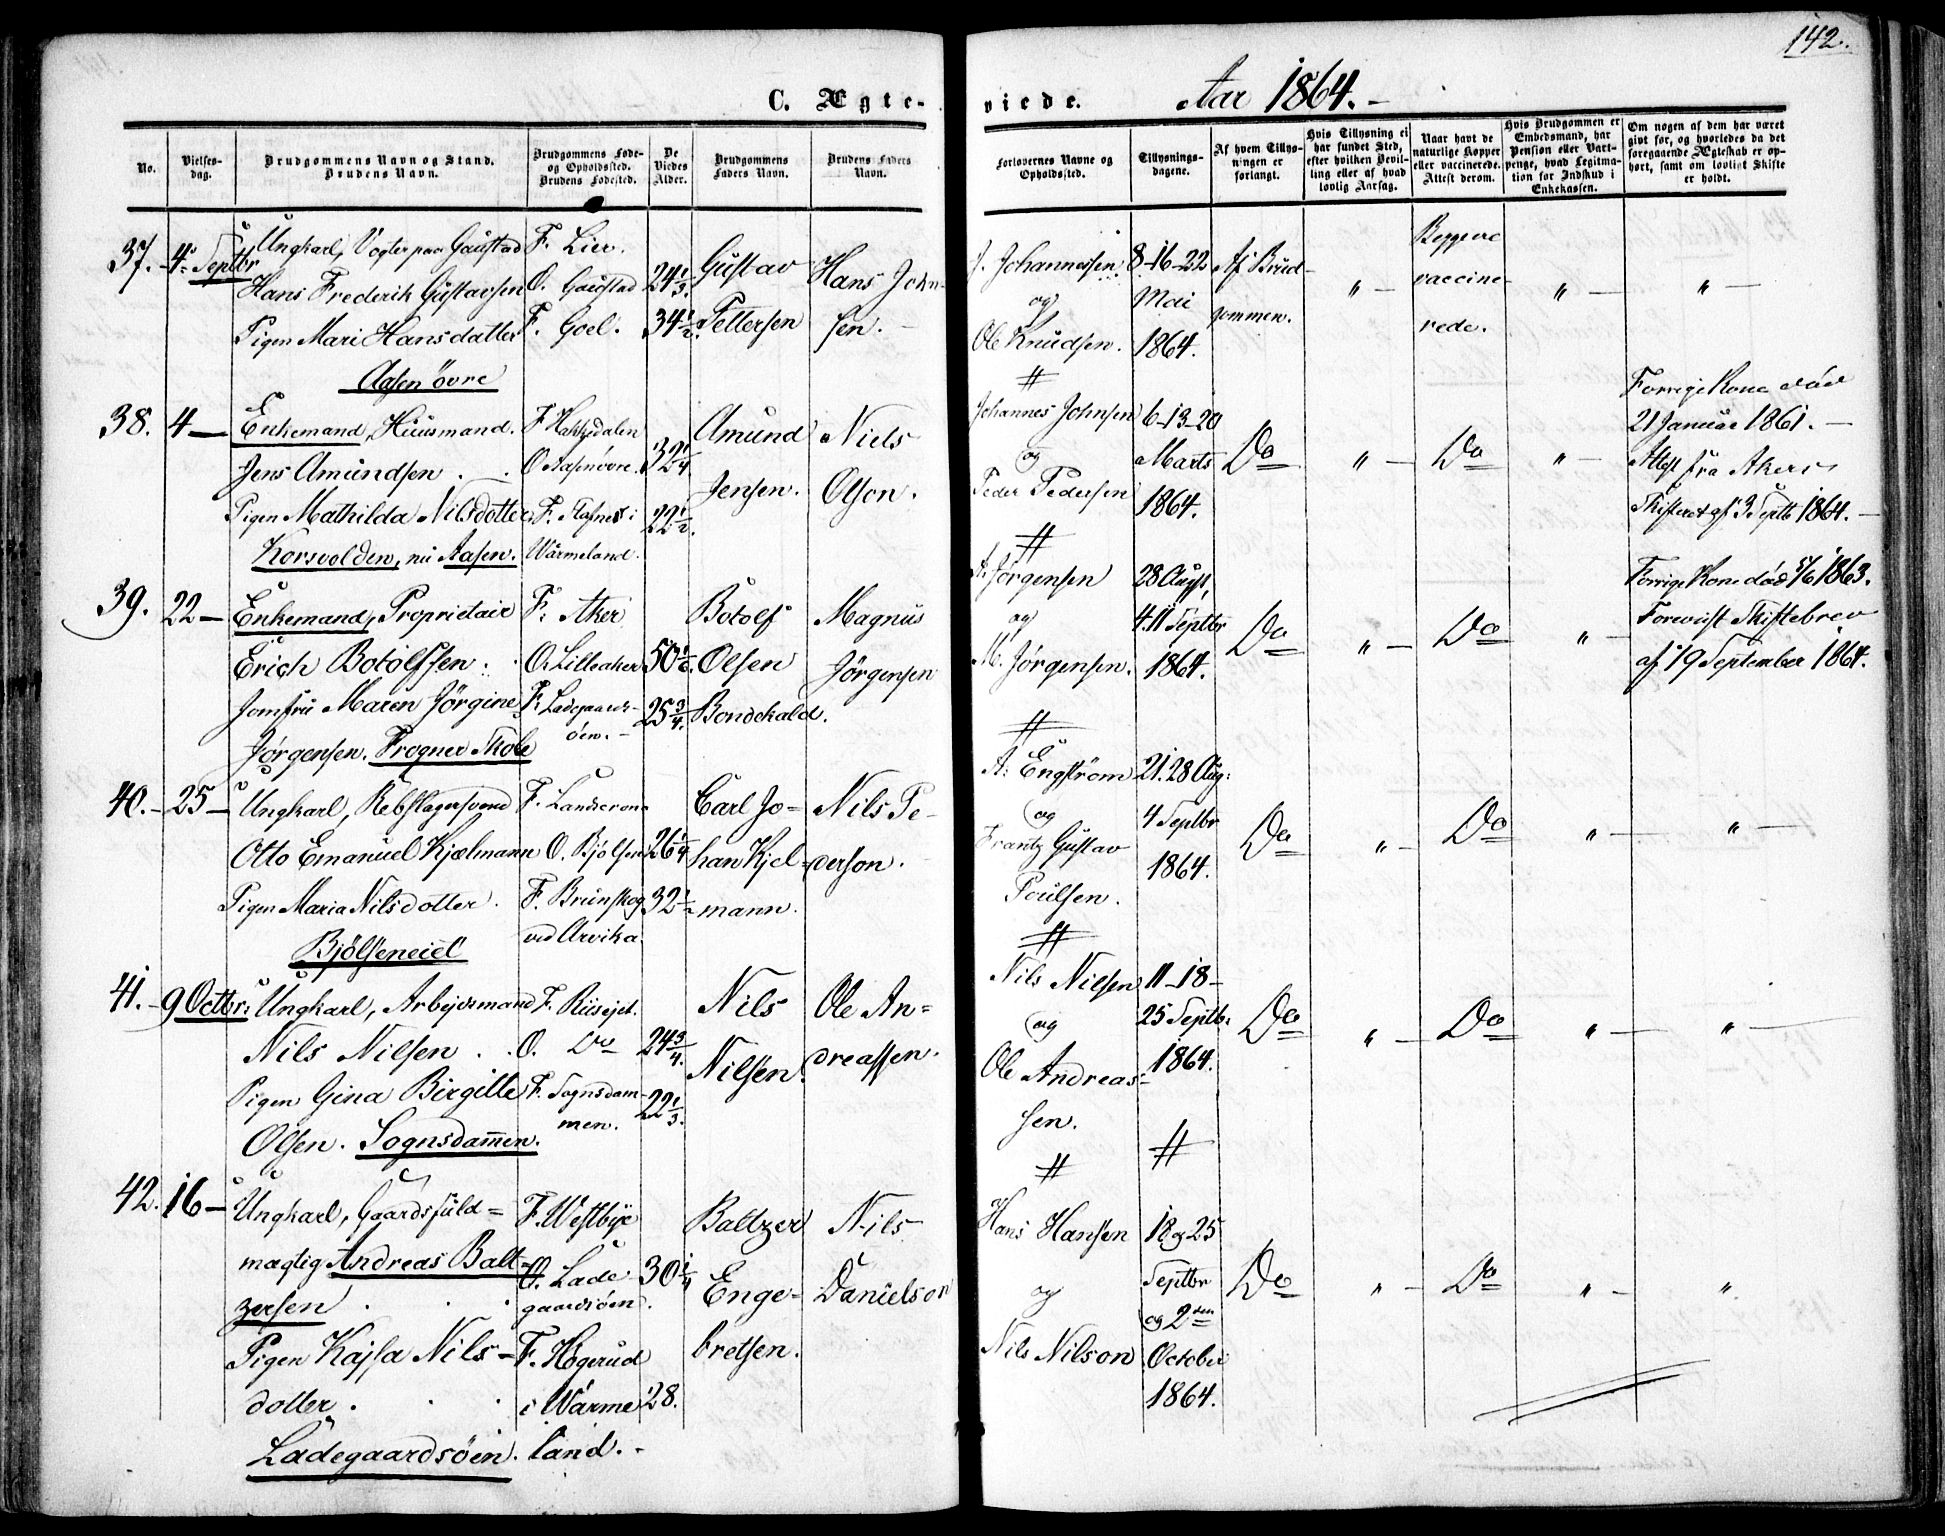 142.
C. Ægte-
viede.
Aar 1864.
No.
Vielses-
dag.
Brudgommens Navn og Stand.
Brudens Navn.
Brudgommens Føde-
og Opholdssted.
Brudens Fødested.
De
Viedes
Alder.
Brudgommens
Faders Navn.
Brudens Faders
Navn.
Forlovernes Navne og
Opholdssted.
Tillysnings-
dagene.
Af hvem Tillys-
ningen er
forlangt.
Hvis Tillysning ei
har fundet Sted,
efter hvilken Bevil-
ling eller af hvad
lovlig Aarsag.
Naar havt de
naturlige Kopper
eller vaccinerede.
Attest derom.
Hvis Brudgommen er
Embedsmand, har
Pension eller Vart-
penge, hvad Legitima-
tion for Indskud i
Enkekassen.
Om nogen af dem har været
gift før, og hvorledes da det
foregaaende Ægteskab er op-
hørt, samt om lovligt Skifte
er holdt.
37.
4. Septbr
Ungkarl, Vogter paa Gaustad
Hans Frederik Gustavsen
Pigen Mari Hansdatter
F. Lier.
O. Gaustad
F. Goel.
24 1/3.
34 1/2.
Gustav
Pettersen
Hans John-
sen.
J. Johannesen
og
Ole Knudsen.
8-16-22
Mai
1864.
Af Brud-
gommen.
" —
Beggere
vaccine-
rede.
" —
" —
Aasen övre
38.
4 —
Enkemand, Huusmand.
Jens Amundsen
Pigen Mathilda Nilsdotter
Korsvolden, nu Aasen.
F. Hakkedalen
O. Aasen övre.
F. i
Wärmeland.
32 1/4
22 1/2.
Amund
Jensen.
Niels
Olson.
Johannes Johnsen
og
Peder Pedersen
6-13-20
Marts
1864.
Do
" —
Do
" —
Forrige Kone död
21 Januar 1861.
Attest fra Akers
Skifteret af 3 Septb 1864.
39.
22 —
Enkemand, Proprietair
Erich Botolfsen
Jomfru Maren Jörgine
Jörgensen. Frogner Skole
F. Aker
O. Lilleaker
F. Ladegaards-
öen.
50 1/6.
25 3/4.
Botolf
Olsen
Bondekald.
Magnus
Jörgensen
A. Jörgensen
og
M. Jörgensen.
28 August,
4. 11 Septbr
1864.
Do
" —
Do
" —
Forrige Kone död 5/6 1863.
Foreviist Skiftebrev
af 19 September 1864.
40.
25 —
Ungkarl, Rebslagersvend
Otto Emanuel Kjælmann
Pigen Maria Nilsdotter.
Bjölseneiet
F. Landscrona
O. Bjölsen
F. Brunskog
ved Arvika.
26 1/4
32 1/2
Carl Jo-
han Kjel-
mann.
Nils Pe-
derson.
A. Engström
og
Frantz Gustav
Poulsen.
21. 28 Aug:
4 Septbr
1864.
Do
" —
Do
" —
" —
41.
9 Octbr:
Ungkarl, Arbejdsmand
Nils Nilsen
Pigen Gina Birgitte
Olsen. Sognsdammen.
F. Riisejet.
O. Do
F. Sognsdam-
men.
24 3/4.
22 1/3.
Nils
Nilsen.
Ole An-
dreassen.
Nils Nilsen
og
Ole Andreas-
sen.
11-18-
25 Septb.
1864.
Do
" —
Do
" —
" —
42.
16 —
Ungkarl, Gaardsfuld-
mægtig Andreas Balt-
zersen
Pigen Kajsa Nils-
dotter
Ladegaardsöen.
F. Westbye
O. Lade
gaardsöen.
F. Högerud
i Wärme
land.
30 1/4
28.
Baltzer
Enge-
bretsen.
Nils
Danielson
Hans Hansen
og
Nils Nilson
18 og 25
Septbr
og 2den
October
1864.
Do
" —
Do
" —
"